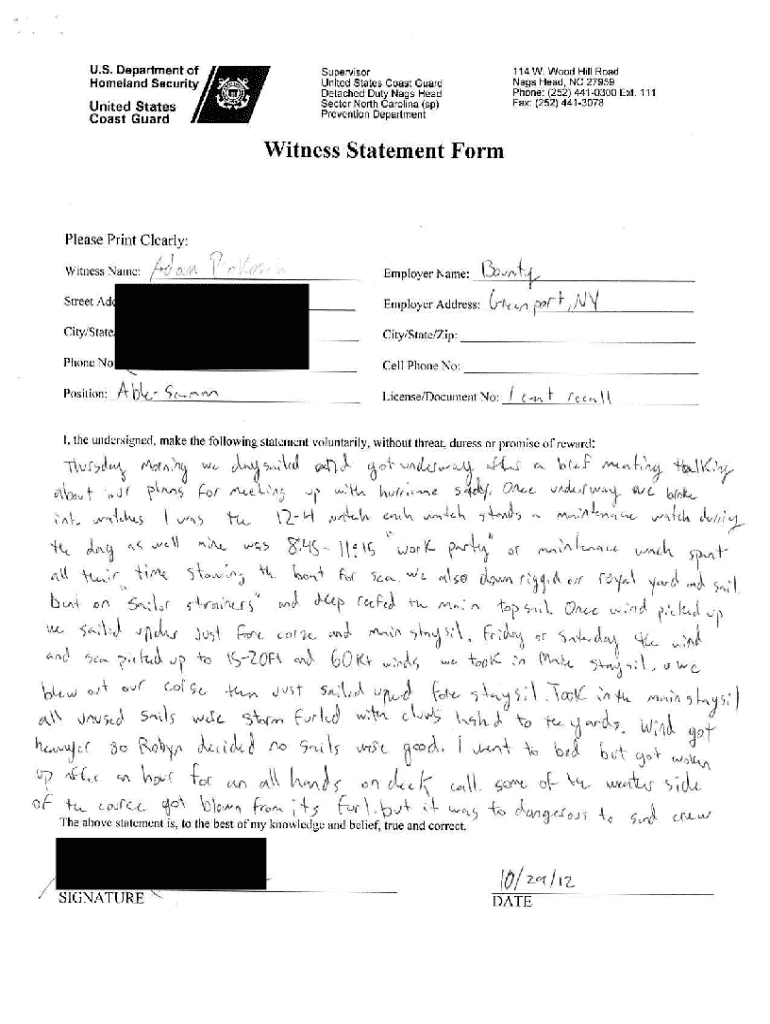 U.S. Department of
Homeland Security
United States
Coast Guard
Supervisor
United States Coast Guard
Detached Duty Nags Head
Sector North Carolina (sp)
Prevention Department
114 W. Wood Hill Road
Nags Head, NC 27959
Phone: (252) 441-0300 Ext. 111
Fax: (252) 441-3078
Witness Statement Form
Please Print Clearly:
Witness Name: Adam
Employer Name: Bounty
Street Add
Employer Address: Greenport, NY
City/State
City/State/Zip:
Phone No
Cell Phone No:
Position: Able-Seaman
License/Document No: I cant recall
I, the undersigned, make the following statement voluntarily, without threat, duress or promise of reward:
Thursday Morning we daysailed and got underway after a brief meating talking
about our plans for meeting up with hurricane safely. Once underway we broke
into watches I was the 12-4 watch each watch stands a maintenace watch during
the day as well mine was 8:45-11:15 "work party" or maintenace wach spent
all their time stowing the boat for sea. we also down rigged our royal yard and sail
bent on "sailor strainers" and deep reefed the main topsail. Once wind picked up
we sailed under just fore corse and main staysil. Friday or Saterday the wind
and sea picked up to 15-20ft and 60Kt winds we took in staysil. we
blew out our corse then just sailed fore staysil. Took in the main staysil
all unused sails were storm furled with lashed to the yards. Wind got
heavyer so Robyn decided no sails were good. I went to bed but got woken
up after an hour for an all hands on deck call. some of the weather side
of the corse got blown from its furl. but it was to dangerous to send crew
The above statement is, to the best of my knowledge and belief, true and correct.
10/29/12
SIGNATURE
DATE